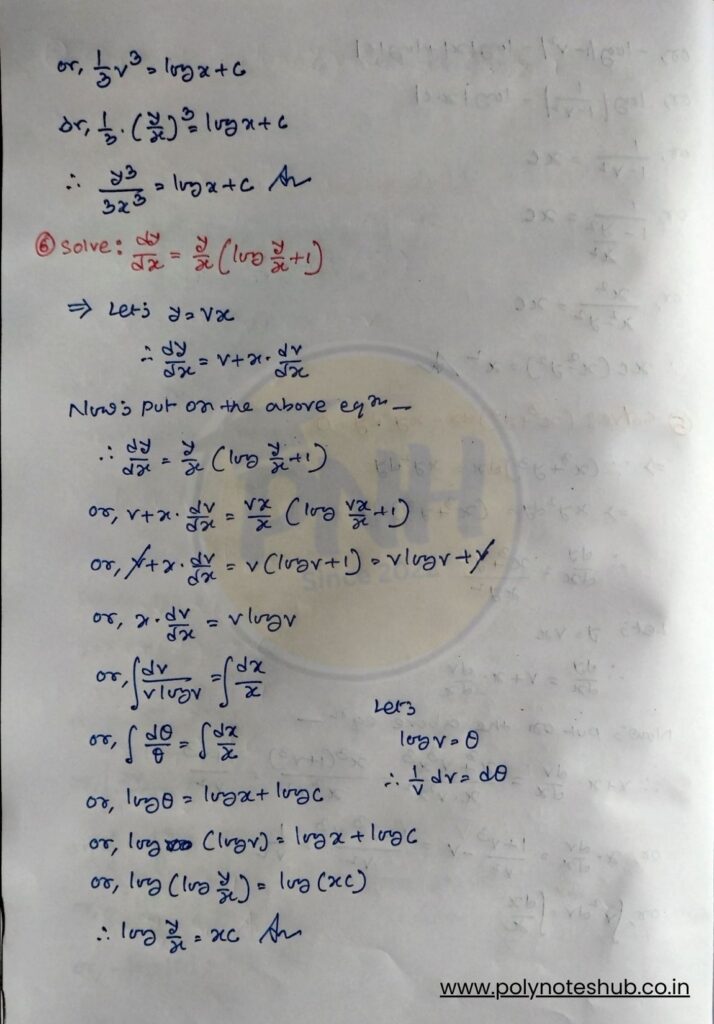 or, 1/3 v³ = log x + c
or, 1/3 · (y/x)³ = log x + c
∴ y³/3x³ = log x + c Ans
⑥ Solve: dy/dx = y/x (log y/x + 1)
⇒ Let, y = vx
∴ dy/dx = v + x · dv/dx
Now, put on the above eqⁿ —
∴ dy/dx = y/x (log y/x + 1)
or, v + x · dv/dx = vx/x (log vx/x + 1)
or, v + x · dv/dx = v(log v + 1) = v log v + v
or, x · dv/dx = v log v
or, ∫ dv/v log v = ∫ dx/x
or, ∫ dθ/θ = ∫ dx/x
Let,
log v = θ
∴ 1/v dv = dθ
or, log θ = log x + log c
or, log (log v) = log x + log c
or, log (log y/x) = log (xc)
∴ log y/x = xc Ans
PNH
Since 202
www.polynoteshub.co.in